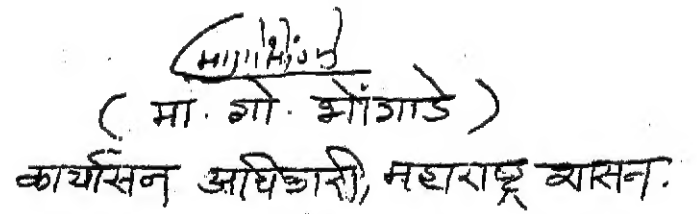 ( मा. गो. भोंगाडे )
कार्यासन अधिकारी, महाराष्ट्र शासन.